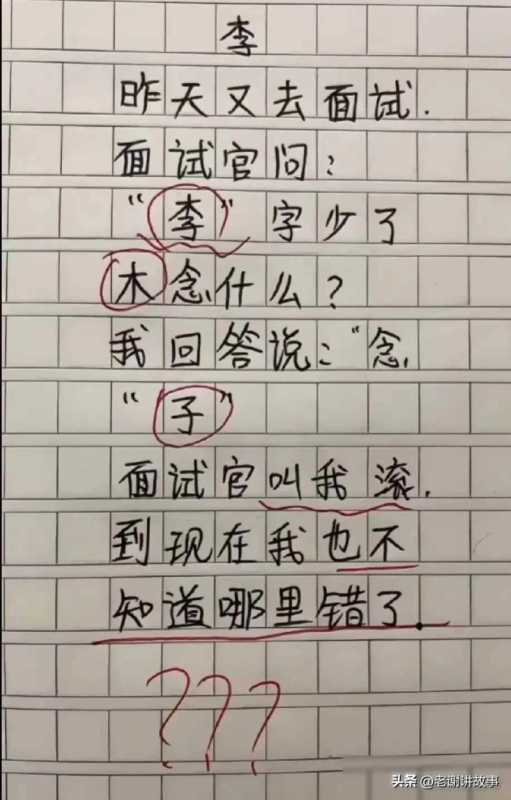 李
昨天又去面试.
面试官问:
“李”字少了
木念什么?
我回答说:“念
“子”
面试官叫我滚.
到现在我也不
知道哪里错了.
???
头条 @老谢讲故事